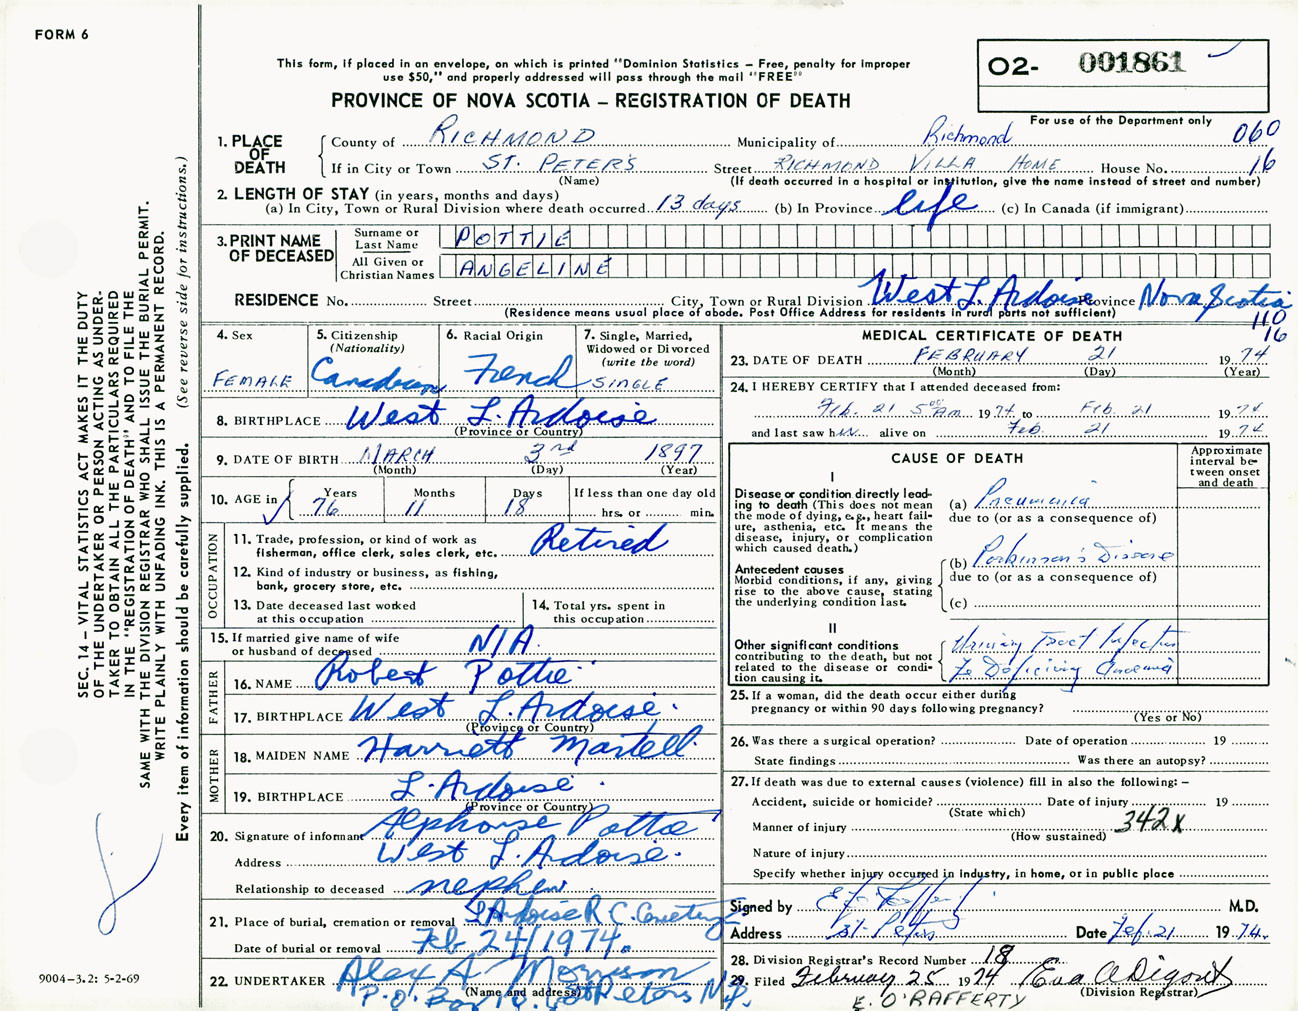 FORM 6
O2- 001861
This form, if placed in an envelope, on which is printed "Dominion Statistics – Free, penalty for improper
use $50," and properly addressed will pass through the mail "FREE"
PROVINCE OF NOVA SCOTIA – REGISTRATION OF DEATH
For use of the Department only
1. PLACE OF DEATH County of RICHMOND Municipality of Richmond 060
If in City or Town ST. PETER'S Street RICHMOND VILLA HOME House No. 16
(Name) (If death occurred in a hospital or institution, give the name instead of street and number)
2. LENGTH OF STAY (in years, months and days)
(a) In City, Town or Rural Division where death occurred 13 days (b) In Province life (c) In Canada (if immigrant)
3. PRINT NAME OF DECEASED
Surname or Last Name POTTIE
All Given or Christian Names ANGELINE
RESIDENCE No. Street City, Town or Rural Division West L'Ardoise Province Nova Scotia
(Residence means usual place of abode. Post Office Address for residents in rural parts not sufficient)
110
16
4. Sex FEMALE
5. Citizenship (Nationality) Canadian
6. Racial Origin French
7. Single, Married, Widowed or Divorced (write the word) SINGLE
8. BIRTHPLACE West L'Ardoise
(Province or Country)
9. DATE OF BIRTH MARCH 3rd 1897
(Month) (Day) (Year)
10. AGE in Years 76 Months 11 Days 18 If less than one day old hrs. or min.
OCCUPATION
11. Trade, profession, or kind of work as
fisherman, office clerk, sales clerk, etc. Retired
12. Kind of industry or business, as fishing,
bank, grocery store, etc.
13. Date deceased last worked
at this occupation
14. Total yrs. spent in
this occupation
15. If married give name of wife
or husband of deceased N/A
FATHER
16. NAME Robert Pottie
17. BIRTHPLACE West L. Ardoise.
(Province or Country)
MOTHER
18. MAIDEN NAME Harriett Martell
19. BIRTHPLACE L. Ardoise
(Province or Country)
20. Signature of informant Alphonse Pottie
Address West L. Ardoise.
Relationship to deceased nephew
21. Place of burial, cremation or removal L'Ardoise R C. Cemetery
Date of burial or removal Feb 24/1974.
22. UNDERTAKER Alex A. Morrison
(Name and address)
P.O. Box St Peters N.S.
MEDICAL CERTIFICATE OF DEATH
23. DATE OF DEATH FEBRUARY 21 1974
(Month) (Day) (Year)
24. I HEREBY CERTIFY that I attended deceased from:
Feb. 21 5 00 AM 1974 to Feb. 21 1974
and last saw her alive on Feb. 21 1974
CAUSE OF DEATH
Approximate interval between onset and death
I
Disease or condition directly leading to death (This does not
mean the mode of dying, e.g., heart failure, asthenia, etc. It means the
disease, injury, or complication
which caused death.)
(a) Pneumonia
due to (or as a consequence of)
Antecedent causes
Morbid conditions, if any, giving
rise to the above cause, stating
the underlying condition last.
(b) Parkinson's Disease
due to (or as a consequence of)
(c)
II
Other significant conditions
contributing to the death, but not
related to the disease or condition causing it.
Urinary Tract Infection
Fe Deficiency Anaemia
25. If a woman, did the death occur either during
pregnancy or within 90 days following pregnancy?
(Yes or No)
26. Was there a surgical operation? Date of operation 19
State findings Was there an autopsy?
27. If death was due to external causes (violence) fill in also the following: –
Accident, suicide or homicide? Date of injury 19
(State which)
Manner of injury 342X
(How sustained)
Nature of injury
Specify whether injury occurred in industry, in home, or in public place
Signed by M.D.
Address St. Peters Date Feb. 21 1974.
28. Division Registrar's Record Number 18
29. Filed February 25 1974
(Division Registrar)
E. O'RAFFERTY
SEC. 14 – VITAL STATISTICS ACT MAKES IT THE DUTY
OF THE UNDERTAKER OR PERSON ACTING AS UNDER-
TAKER TO OBTAIN ALL THE PARTICULARS REQUIRED
IN THE "REGISTRATION OF DEATH" AND TO FILE THE
SAME WITH THE DIVISION REGISTRAR WHO SHALL ISSUE THE BURIAL PERMIT.
WRITE PLAINLY WITH UNFADING INK. THIS IS A PERMANENT RECORD.
Every item of information should be carefully supplied. (See reverse side for instructions.)
9004-3.2: 5-2-69